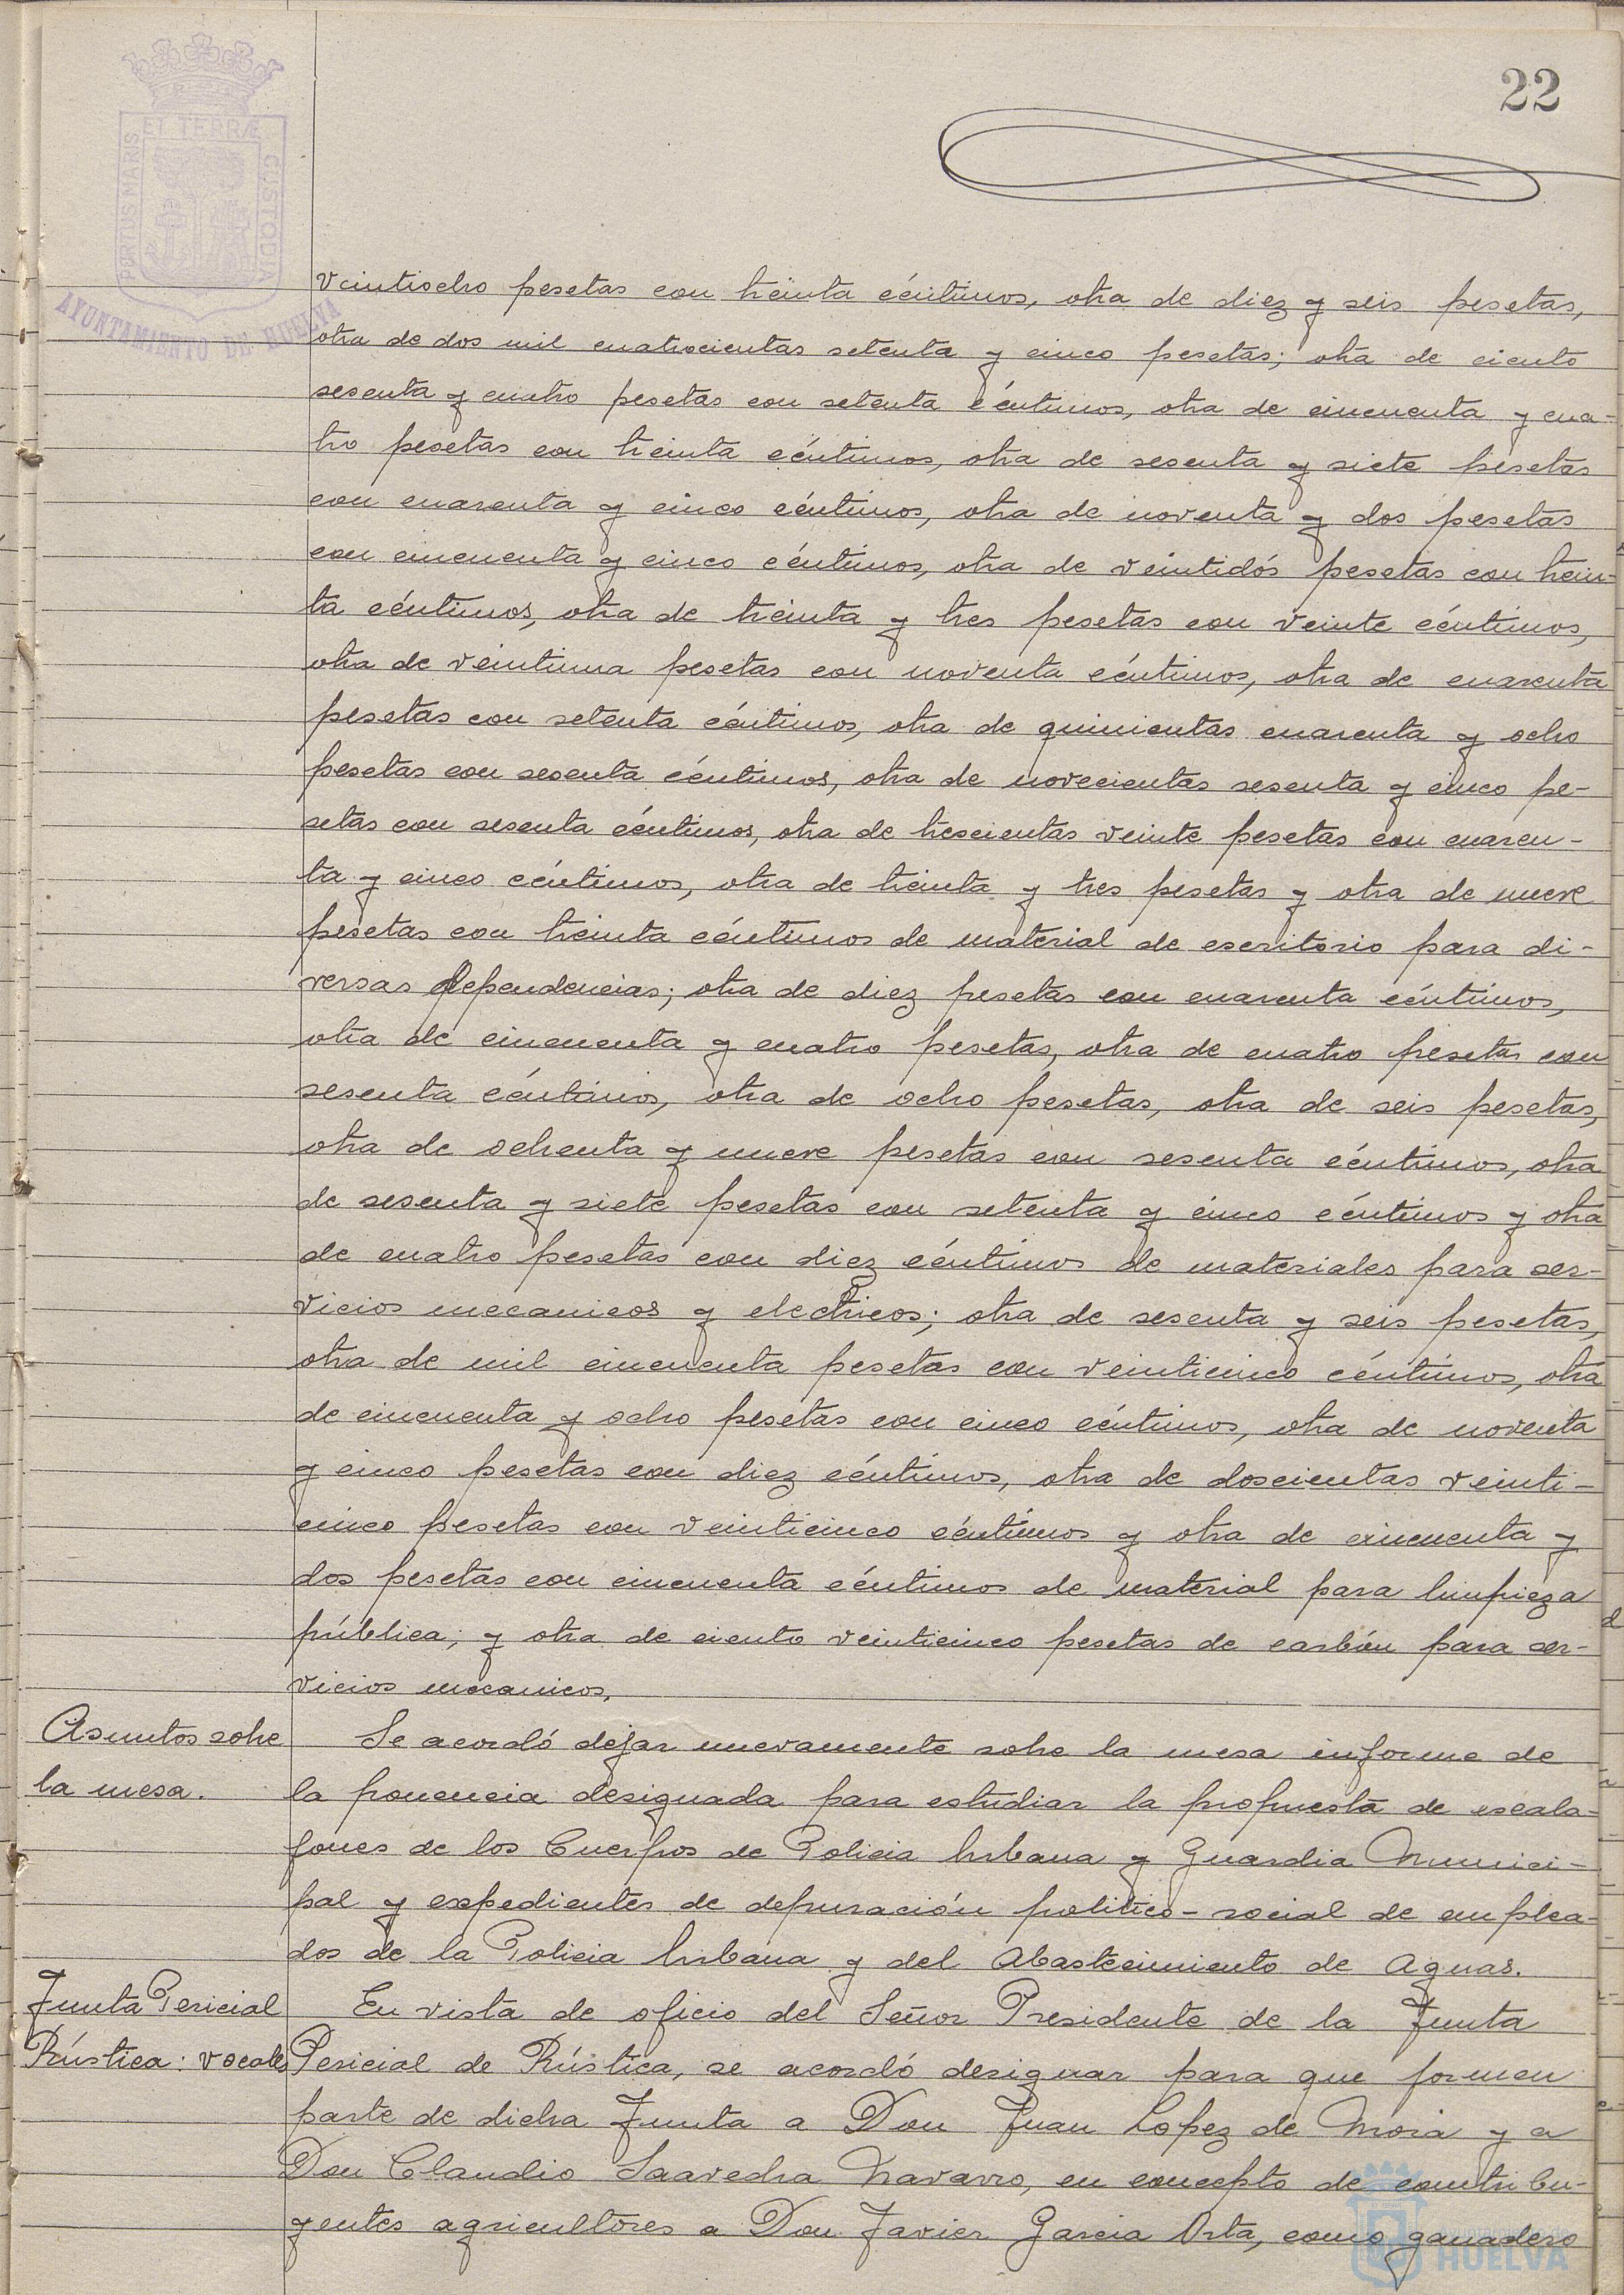 22
PORTUS MARIS
ET TERRÆ
CUSTODIA
AYUNTAMIENTO DE HUELVA
veintiocho pesetas con treinta céntimos, otra de diez y seis pesetas,
otra de dos mil cuatrocientas setenta y cinco pesetas; otra de ciento
sesenta y cuatro pesetas con setenta céntimos, otra de cincuenta y cua-
tro pesetas con treinta céntimos, otra de sesenta y siete pesetas
con cuarenta y cinco céntimos, otra de noventa y dos pesetas
con cincuenta y cinco céntimos, otra de veintidós pesetas con trein-
ta céntimos, otra de treinta y tres pesetas con veinte céntimos,
otra de veintiuna pesetas con noventa céntimos, otra de cuarenta
pesetas con setenta céntimos, otra de quinientas cuarenta y ocho
pesetas con sesenta céntimos, otra de novecientas sesenta y cinco pe-
setas con sesenta céntimos, otra de trescientas veinte pesetas con cuaren-
ta y cinco céntimos, otra de treinta y tres pesetas y otra de nueve
pesetas con treinta céntimos de material de escritorio para di-
versas dependencias; otra de diez pesetas con cuarenta céntimos,
otra de cincuenta y cuatro pesetas, otra de cuatro pesetas con
sesenta céntimos, otra de ocho pesetas, otra de seis pesetas,
otra de ochenta y nueve pesetas con sesenta céntimos, otra
de sesenta y siete pesetas con setenta y cinco céntimos y otra
de cuatro pesetas con diez céntimos de materiales para ser-
vicios mecanicos y electricos; otra de sesenta y seis pesetas,
otra de mil cincuenta pesetas con veinticinco céntimos, otra
de cincuenta y ocho pesetas con cinco céntimos, otra de noventa
y cinco pesetas con diez céntimos, otra de doscientas veinti-
cinco pesetas con veinticinco céntimos y otra de cincuenta y
dos pesetas con cincuenta céntimos de material para limpieza
pública; y otra de ciento veinticinco pesetas de carbón para ser-
vicios mecanicos.
Asuntos sobre
la mesa.
Se acordó dejar nuevamente sobre la mesa informe de
la ponencia designada para estudiar la propuesta de escala-
fones de los Cuerpos de Policia Urbana y Guardia Munici-
pal y expedientes de depuración politico-social de emplea-
dos de la Policia Urbana y del Abastecimiento de Aguas.
Junta Pericial
Rústica: vocales
En vista de oficio del Señor Presidente de la Junta
Pericial de Rústica, se acordó designar para que formen
parte de dicha Junta a Don Juan Lopez de Mora y a
Don Claudio Saavedra Navarro, en concepto de contribu-
yentes agricultores a Don Javier Garcia Orta, como ganadero
HUELVA